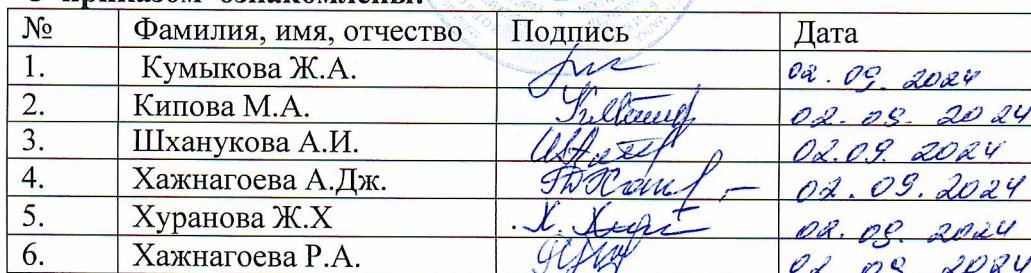 С приказом ознакомлены:
№ Фамилия, имя, отчество Подпись Дата
1. Кумыкова Ж.А. 02.09.2024
2. Кипова М.А. 02.09.2024
3. Шханукова А.И. 02.09.2024
4. Хажнагоева А.Дж. 02.09.2024
5. Хуранова Ж.Х 02.09.2024
6. Хажнагоева Р.А. 02 09 2024